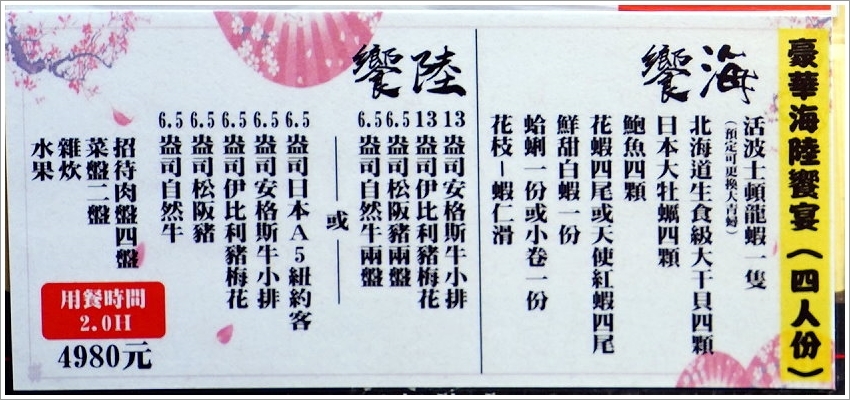 豪華海陸饗宴（四人份）
海饗
活波士頓龍蝦一隻
（預定可更換大青蟳）
北海道生食級大干貝四顆
日本大牡蠣四顆
鮑魚四顆
花蝦四尾或天使紅蝦四尾
鮮甜白蝦一份
蛤蜊一份或小卷一份
花枝－蝦仁滑
陸饗
13盎司安格斯牛小排
13盎司伊比利豬梅花
6.5盎司松阪豬兩盤
6.5盎司自然牛兩盤
或
6.5盎司日本A5紐約客
6.5盎司安格斯牛小排
6.5盎司伊比利豬梅花
6.5盎司松阪豬
6.5盎司自然牛
招待肉盤四盤
菜盤二盤
雜炊
水果
用餐時間
2.0H
4980元